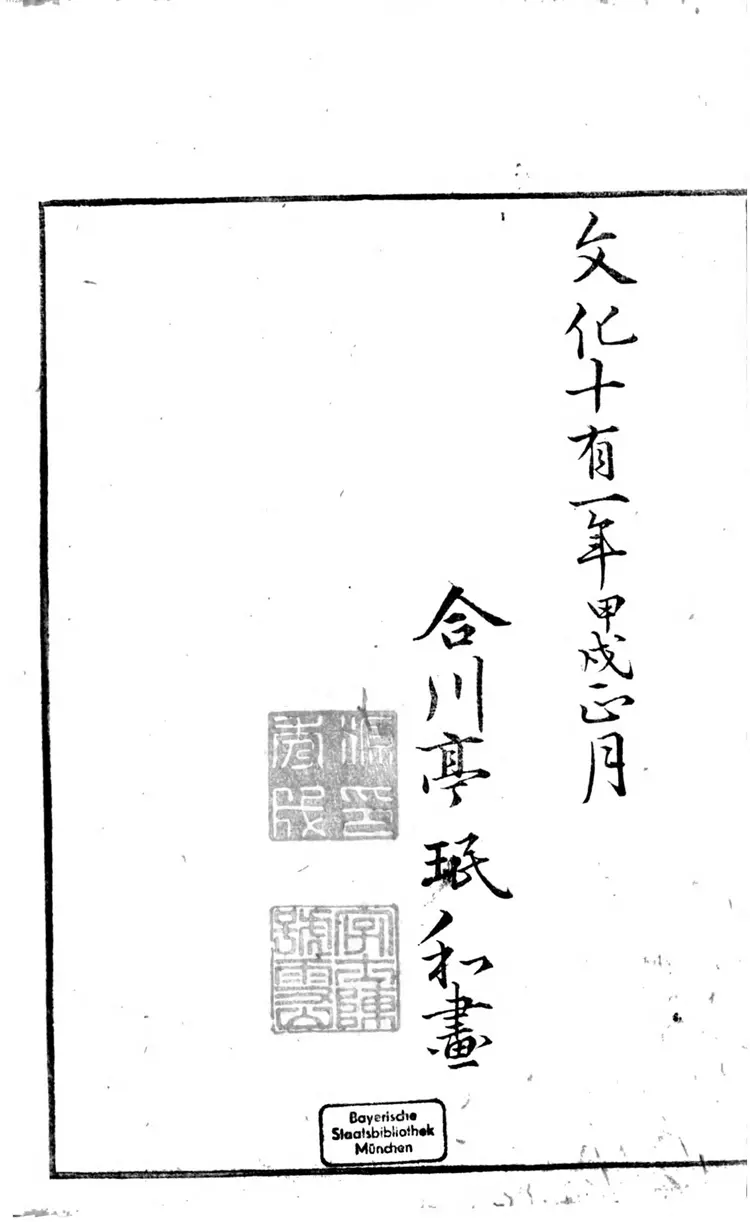 文化十有一年甲戌正月
合川亭珉和畫
Bayerische
Staatsbibliothek
München